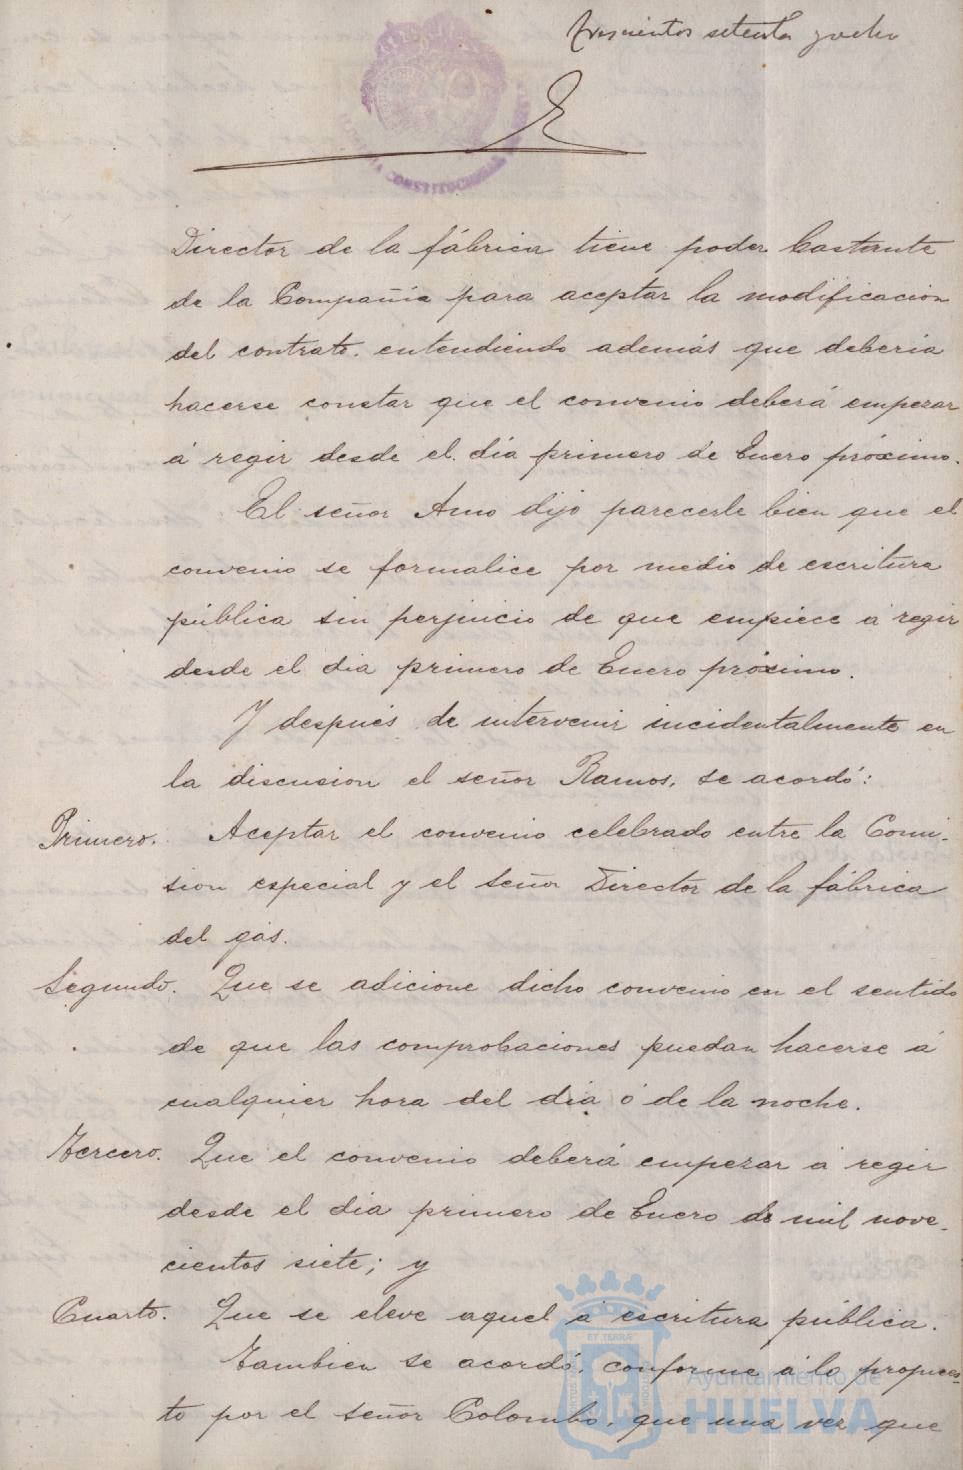 trescientos setenta y ocho
CONSTITUCIONAL
Director de la fábrica tiene poder bastante
de la Compañia para aceptar la modificacion
del contrato. entendiendo además que deberia
hacerse constar que el convenio deberá empezar
á regir desde el día primero de Enero próximo.
El señor Amo dijo parecerle bien que el
convenio se formalice por medio de escritura
pública sin perjuicio de que empiece á regir
desde el dia primero de Enero próximo.
Y después de intervenir incidentalmente en
la discusion el señor Ramos, se acordó:
Primero. Aceptar el convenio celebrado entre la Comi-
sion especial y el Señor Director de la fábrica
del gas.
Segundo. Que se adicione dicho convenio en el sentido
de que las comprobaciones puedan hacerse á
cualquier hora del día ó de la noche.
Tercero. Que el convenio deberá empezar á regir
desde el dia primero de Enero de mil nove-
cientos siete; y
Cuarto. Que se eleve aquel á escritura pública.
Tambien se acordó, conforme á lo propues-
to por el señor Colombo, que una vez que
ET TERRÆ
Ayuntamiento de
HUELVA